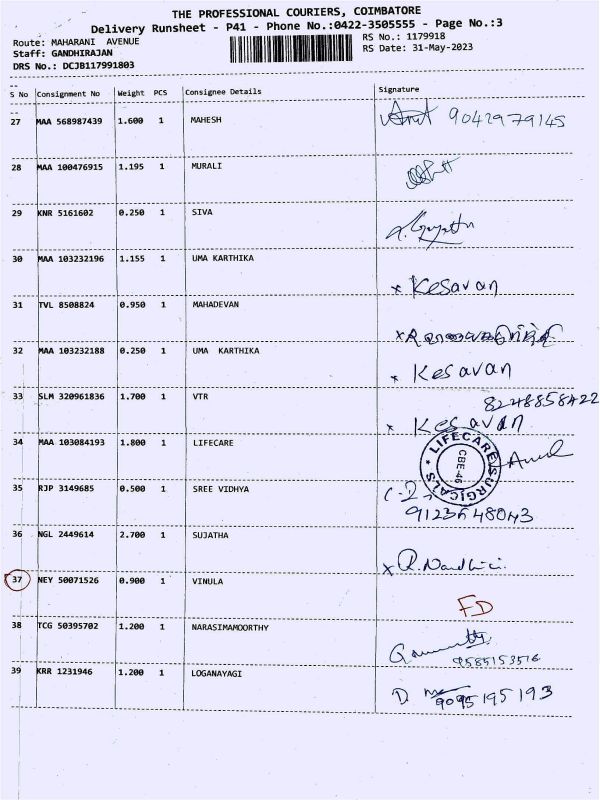 THE PROFESSIONAL COURIERS, COIMBATORE
Delivery Runsheet - P41 - Phone No.:0422-3505555 - Page No.:3
Route: MAHARANI AVENUE RS No.: 1179918
Staff: GANDHIRAJAN RS Date: 31-May-2023
DRS No.: DCJB117991803
S No Consignment No Weight PCS Consignee Details Signature
27 MAA 568987439 1.600 1 MAHESH 9042979145
28 MAA 100476915 1.195 1 MURALI
29 KNR 5161602 0.250 1 SIVA
30 MAA 103232196 1.155 1 UMA KARTHIKA x Kesavan
31 TVL 8508824 0.950 1 MAHADEVAN
32 MAA 103232188 0.250 1 UMA KARTHIKA x Kesavan
33 SLM 320961836 1.700 1 VTR 8248858422
x Kesavan
34 MAA 103084193 1.800 1 LIFECARE
LIFECARE SURGICALS
CBE-46
35 RJP 3149685 0.500 1 SREE VIDHYA
9123648043
36 NGL 2449614 2.700 1 SUJATHA x R. Nandhini
37 NEY 50071526 0.900 1 VINULA FD
38 TCG 50395702 1.200 1 NARASIMAMOORTHY
9585153516
39 KRR 1231946 1.200 1 LOGANAYAGI D 9095195193